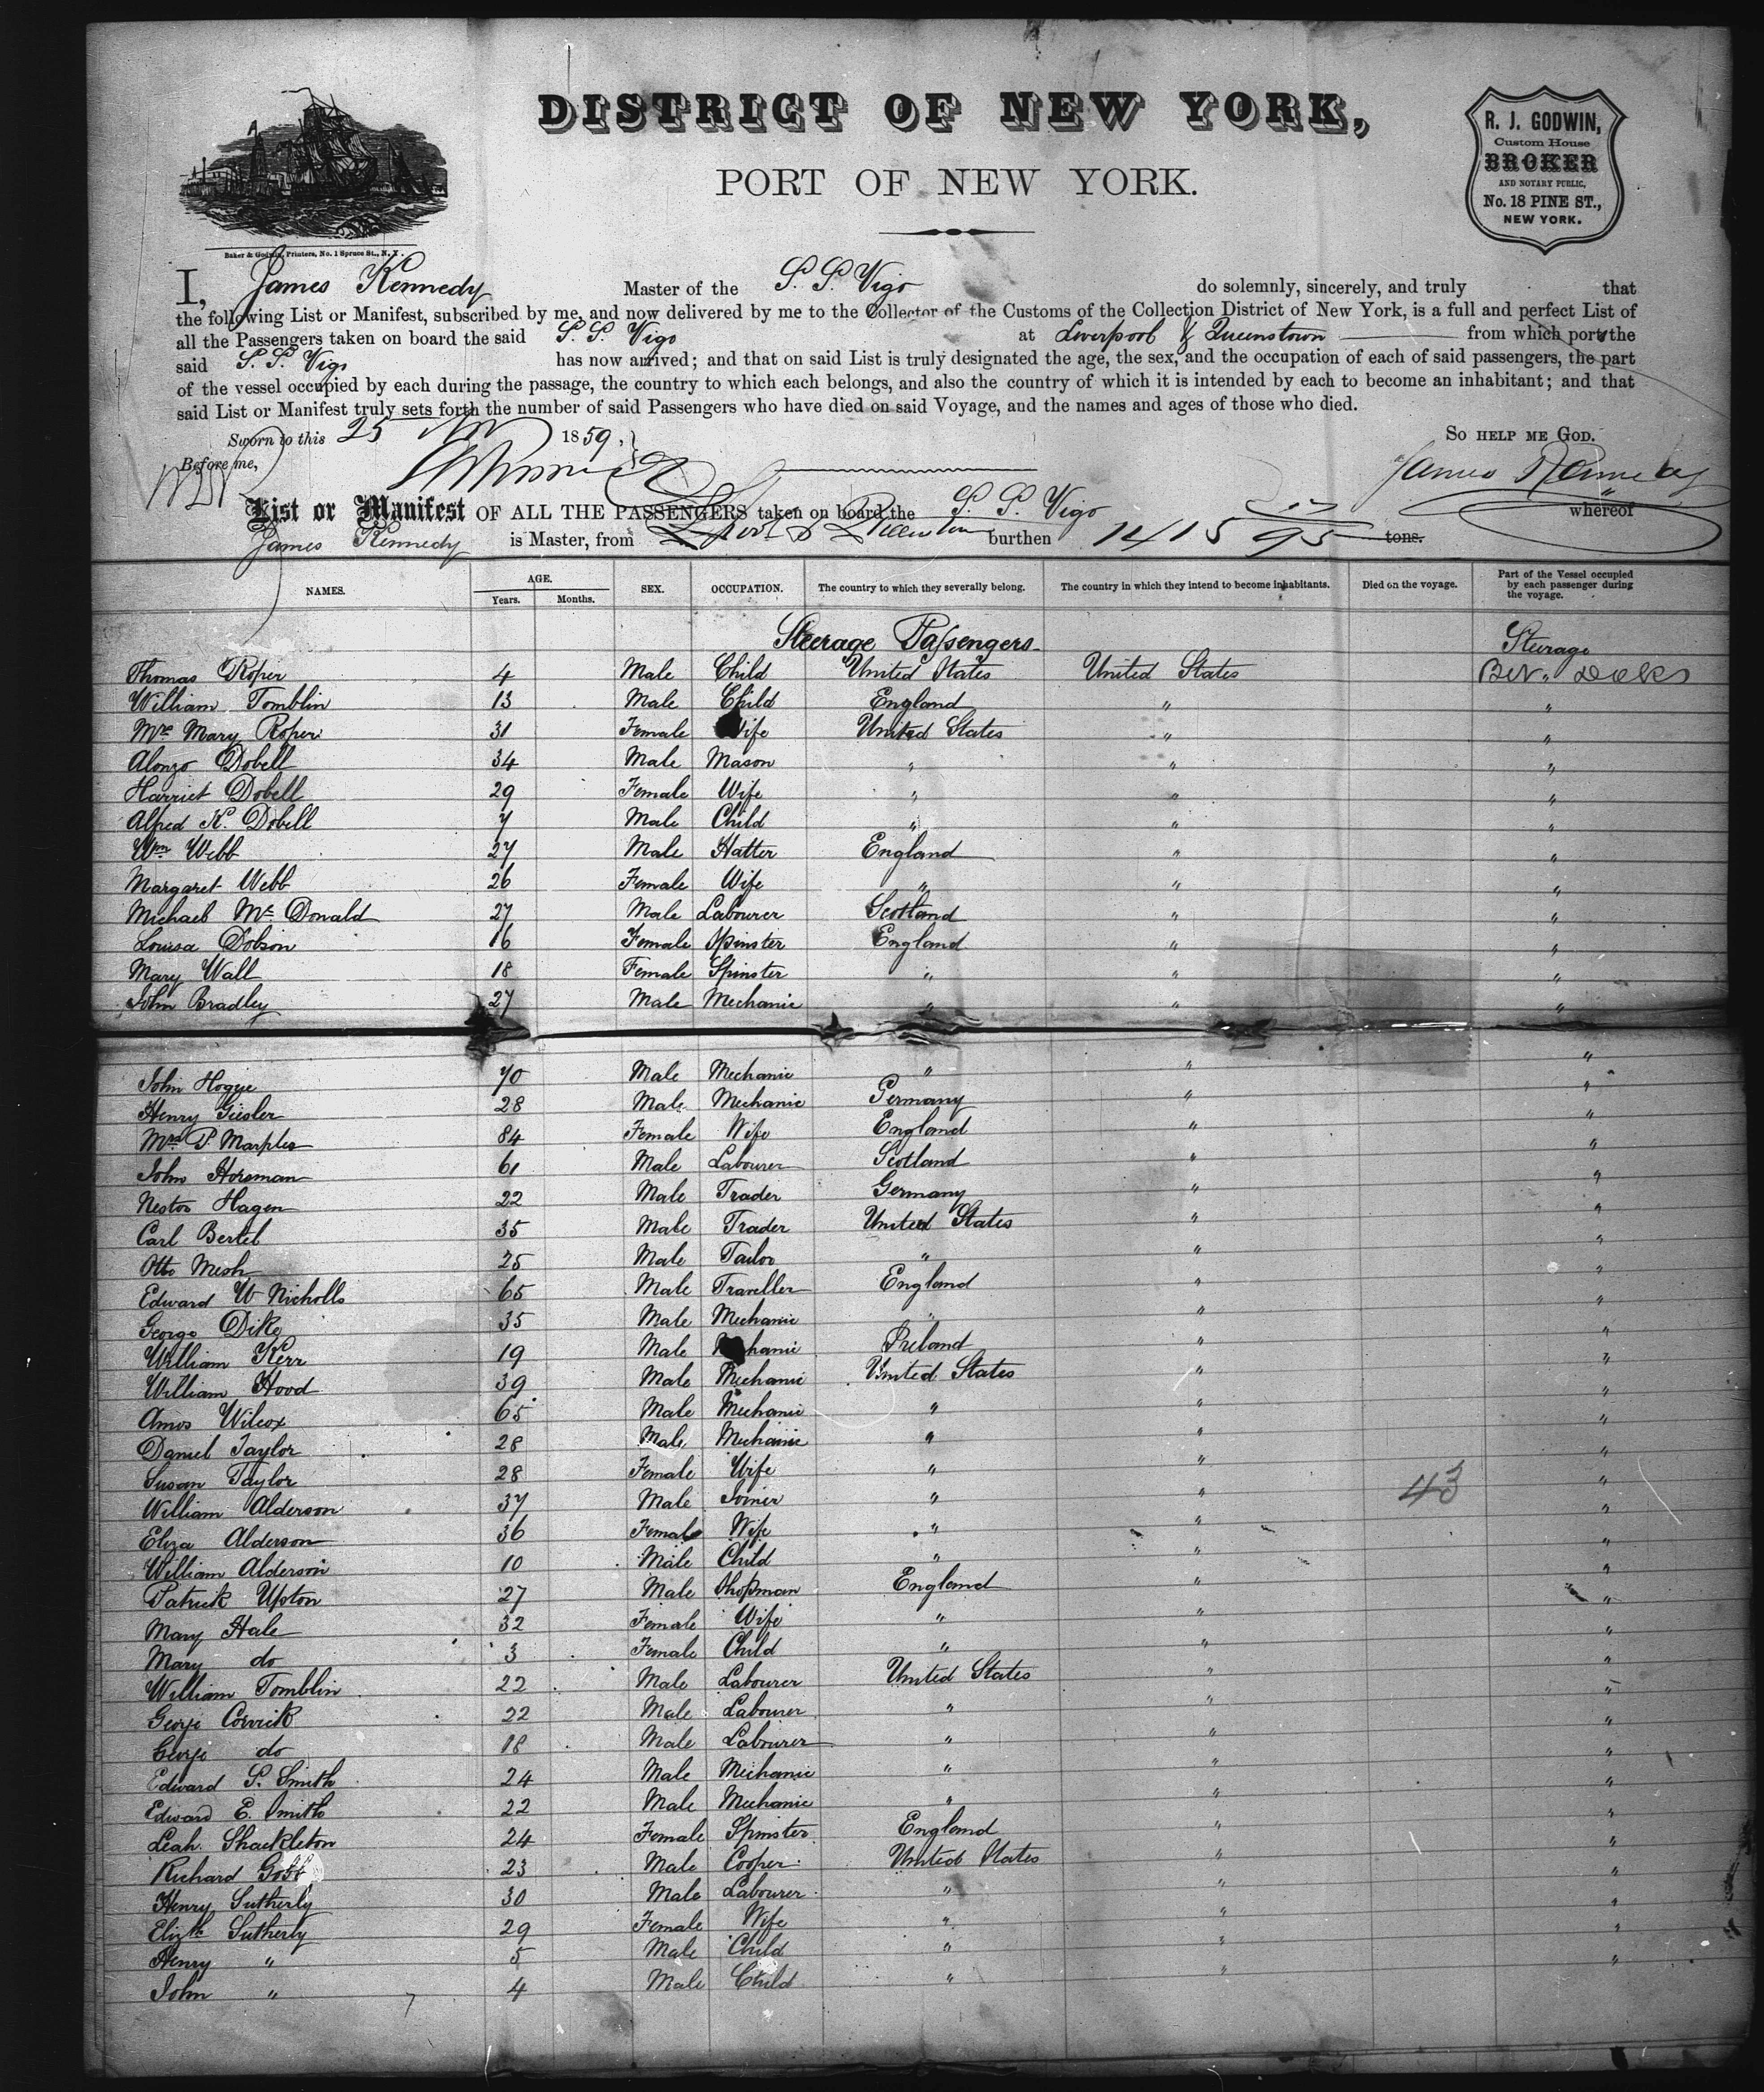 DISTRICT OF NEW YORK,
PORT OF NEW YORK.
R. J. GODWIN,
Custom House
BROKER
AND NOTARY PUBLIC,
No. 18 PINE ST.,
NEW YORK.
Baker & Godwin, Printers, No. 1 Spruce St., N. Y.
I, James Kennedy Master of the S. S. Vigo do solemnly, sincerely, and truly that
the following List or Manifest, subscribed by me, and now delivered by me to the Collector of the Customs of the Collection District of New York, is a full and perfect List of
all the Passengers taken on board the said S. S. Vigo at Liverpool & Queenstown from which ports the
said S. S. Vigo has now arrived; and that on said List is truly designated the age, the sex, and the occupation of each of said passengers, the part
of the vessel occupied by each during the passage, the country to which each belongs, and also the country of which it is intended by each to become an inhabitant; and that
said List or Manifest truly sets forth the number of said Passengers who have died on said Voyage, and the names and ages of those who died.
Sworn to this 25 1859, SO HELP ME GOD.
Before me, James Kennedy
List or Manifest OF ALL THE PASSENGERS taken on board the S. S. Vigo whereof
James Kennedy is Master, from burthen 1415 95 tons.
NAMES. AGE. Years. Months. SEX. OCCUPATION. The country to which they severally belong. The country in which they intend to become inhabitants. Died on the voyage. Part of the Vessel occupied by each passenger during the voyage.
Steerage Passengers Steerage
Thomas Roper 4 Male Child United States United States Bet. Decks
William Tomblin 13 Male Child England " "
Mrs Mary Roper 31 Female Wife United States " "
Alonzo Dobell 34 Male Mason " " "
Harriet Dobell 29 Female Wife " " "
Alfred K. Dobell 7 Male Child " " "
Wm Webb 27 Male Hatter England " "
Margaret Webb 26 Female Wife " " "
Michael Mc Donald 27 Male Labourer Scotland " "
Louisa Dobson 16 Female Spinster England " "
Mary Wall 18 Female Spinster " " "
John Bradley 27 Male Mechanic " " "
John Hogye 70 Male Mechanic " " "
Henry Giesler 28 Male Mechanic Germany " "
Mrs P. Marples 84 Female Wife England " "
John Horsman 61 Male Labourer Scotland " "
Nestor Hagen 22 Male Trader Germany " "
Carl Bertel 35 Male Trader United States " "
Otto Mesh 25 Male Tailor " " "
Edward W Nicholls 65 Male Traveller England " "
George Dike 35 Male Mechanic " " "
William Kerr 19 Male Mechanic Ireland " "
William Hood 39 Male Mechanic United States " "
Amos Wilcox 65 Male Mechanic " " "
Daniel Taylor 28 Male Mechanic " " "
Susan Taylor 28 Female Wife " " "
William Alderson 37 Male Joiner " " 43 "
Eliza Alderson 36 Female Wife " " "
William Alderson 10 Male Child " " "
Patrick Upton 27 Male Shopman England " "
Mary Hale 32 Female Wife " " "
Mary do 3 Female Child " " "
William Tomblin 22 Male Labourer United States " "
George Corrick 22 Male Labourer " " "
George do 18 Male Labourer " " "
Edward S. Smith 24 Male Mechanic " " "
Edward E. Smith 22 Male Mechanic " " "
Leah Shackleton 24 Female Spinster England " "
Richard 23 Male Cooper United States " "
Henry Sutherly 30 Male Labourer " " "
Elizth Sutherly 29 Female Wife " " "
Henry " 5 Male Child " " "
John " 4 Male Child " " "